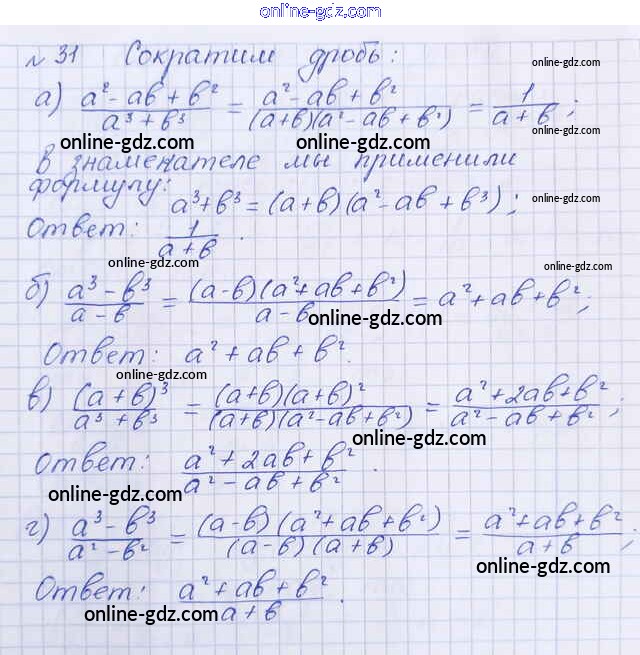 online-gdz.com
№ 31 Сократим дробь:
online-gdz.com
а) (a² - ab + b²)/(a³ + b³) = (a² - ab + b²)/((a+b)(a² - ab + b²)) = 1/(a + b);
online-gdz.com online-gdz.com online-gdz.com
В знаменателе мы применили
формулу:
a³ + b³ = (a + b)(a² - ab + b³);
online-gdz.com
Ответ: 1/(a + b).
online-gdz.com
online-gdz.com
б) (a³ - b³)/(a - b) = ((a - b)(a² + ab + b²))/(a - b) = a² + ab + b²;
online-gdz.com
Ответ: a² + ab + b².
online-gdz.com
в) (a + b)³/(a³ + b³) = ((a+b)(a+b)²)/((a+b)(a² - ab + b²)) = (a² + 2ab + b²)/(a² - ab + b²);
online-gdz.com
Ответ: (a² + 2ab + b²)/(a² - ab + b²).
online-gdz.com
г) (a³ - b³)/(a² - b²) = ((a - b)(a² + ab + b²))/((a - b)(a + b)) = (a² + ab + b²)/(a + b);
online-gdz.com
Ответ: (a² + ab + b²)/(a + b).
online-gdz.com
online-gdz.com